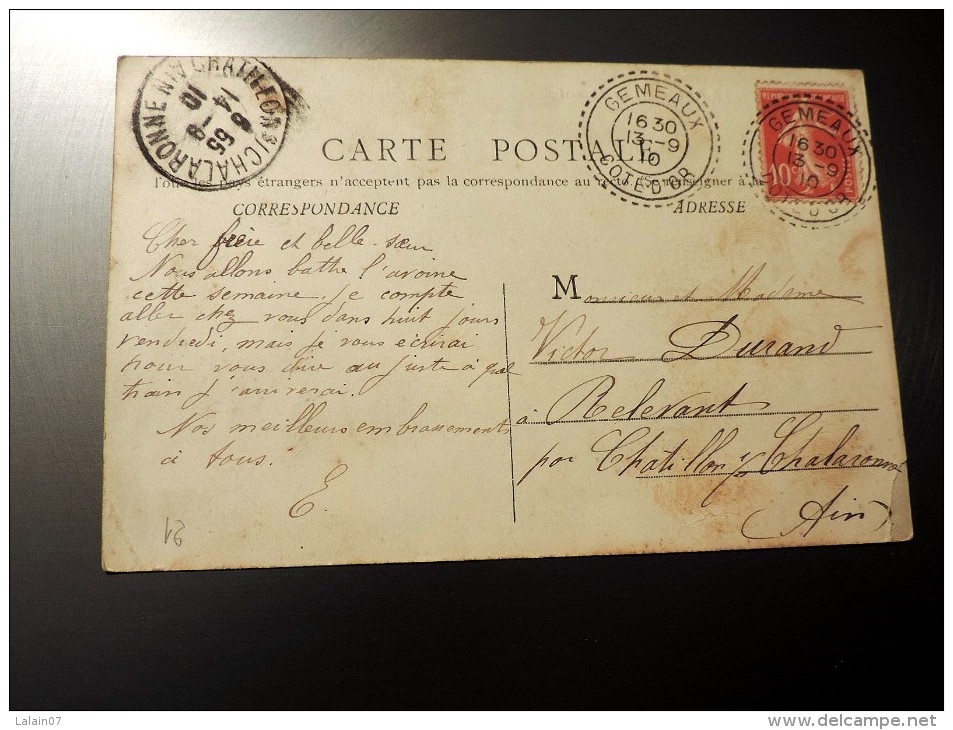 CHATILLON S/ CHALARONNE AIN
14-9
10
GEMEAUX
16 30
13-9
10
COTE-D'OR
GEMEAUX
16 30
13-9
10
10
CARTE POSTALE
Tous les pays étrangers n'acceptent pas la correspondance au recto. (Se renseigner à la
CORRESPONDANCE
Cher frère et belle-sœur
Nous allons battre l'avoine
cette semaine. Je compte
aller chez vous dans huit jours
vendredi, mais je vous écrirai
pour vous dire au juste à quel
train j'arriverai.
Nos meilleurs embrassements
à tous.
E.
21
ADRESSE
Monsieur et Madame
Victor Durand
à Relevant
par Châtillon s/ Chalaronne
(Ain)
Lalain07
www.delcampe.net